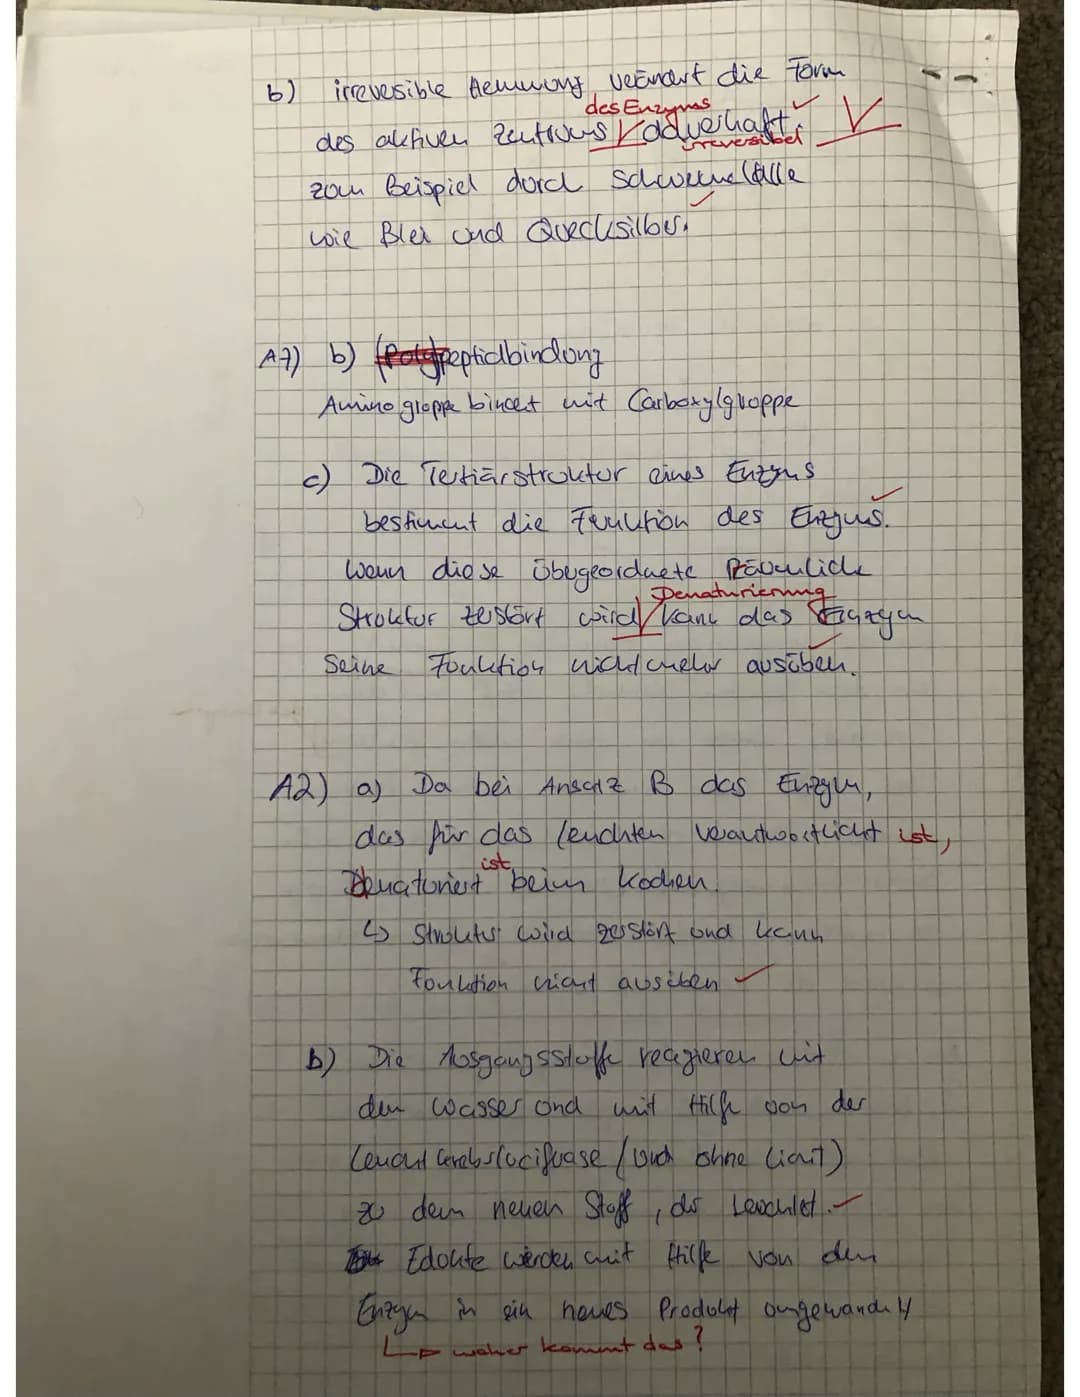 b) irrevesible Hemmung verändert die Form
des Enzyms
des aktiven Zentrums √ dauerhaft. ✓ √
irreversibel
zum Beispiel durch Schwermetalle
wie Blei und Quecksilber. ✓
A7) b) (Poly)peptidbindung
Aminogruppe bindet mit Carboxylgruppe
c) Die Tertiärstruktur eines Enzyms
bestimmt die Funktion des Enzyms. ✓
Wenn diese übergeordnete räumliche
Denaturierung
Struktur zerstört wird √ kann das Enzym
Seine Funktion nicht mehr ausüben. ✓
A2) a) Da bei Ansatz B das Enzym,
das für das leuchten verantwortlicht ist,
ist
Denaturiert beim Kochen.
↳ Struktur wird zerstört und kann
Funktion nicht ausüben ✓
b) Die Ausgangsstoffe reagieren mit
dem Wasser und mit Hilfe von der
Leuchtkrebsluciferase (und ohne Licht)
zu dem neuen Stoff, der Leuchtet. ✓
Edukte werden mit Hilfe von dem
Enzym in ein neues Produkt umgewandelt
↳ woher kommt das?